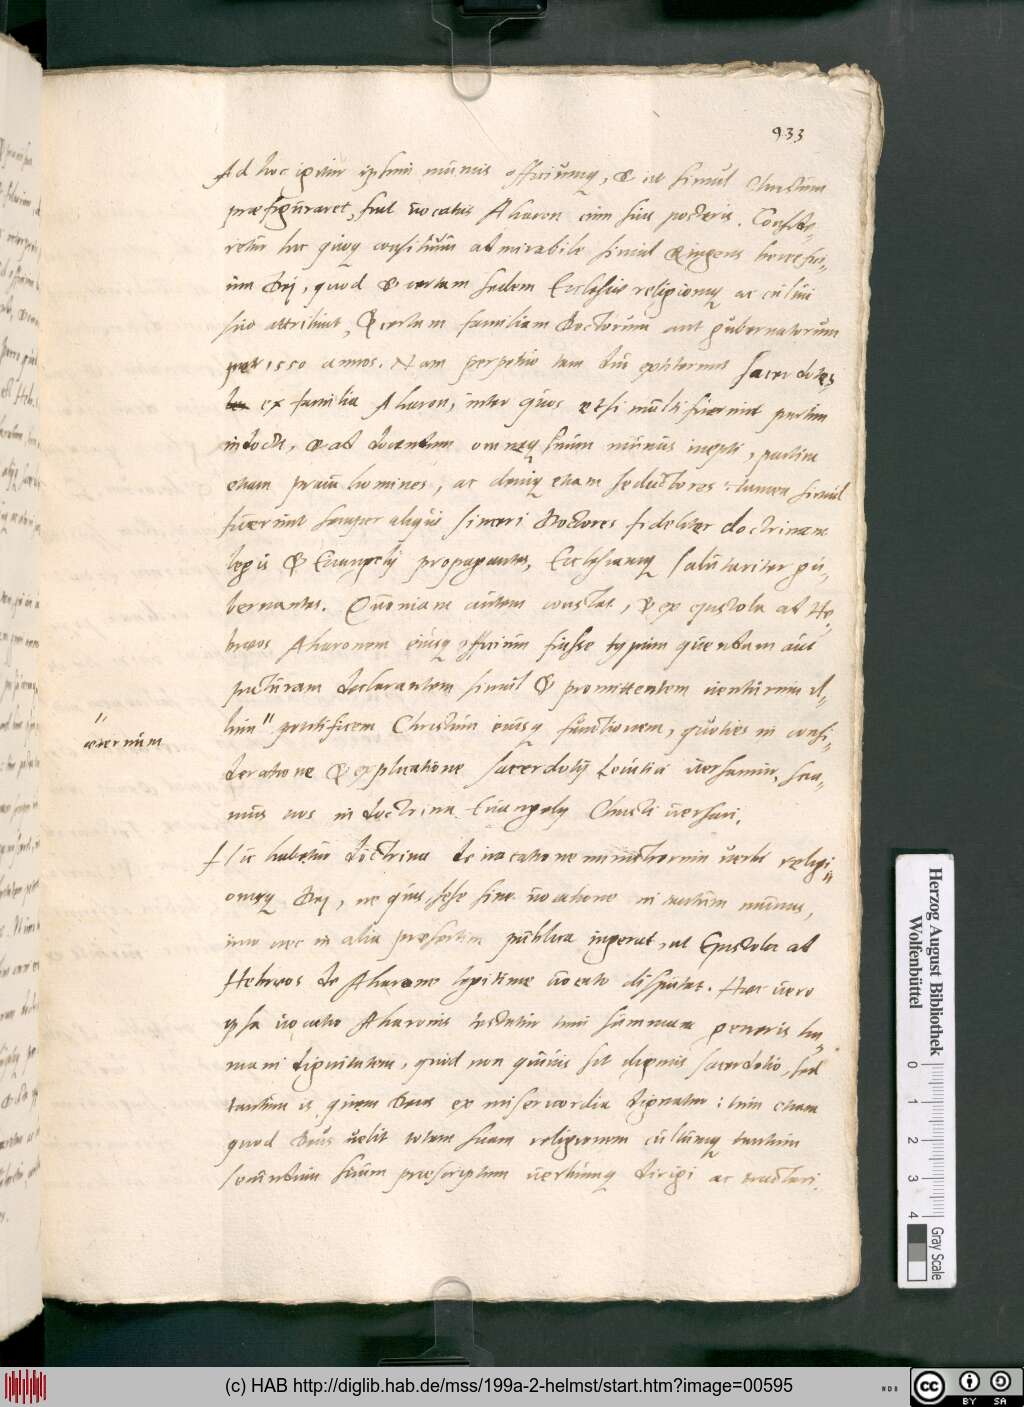 933
Ad hoc igitur ipsum munus officiumq, & ut simul Christum
præfiguraret, fuit vocatus Aharon cum suis posteris. Conside-
retur hic quoq consilium admirabile simul & ingens benefici-
um Dei, quod & certam sedem Ecclesiæ religioniq ac cultui
suo attribuit, & certam familiam doctorum aut gubernatorum
1550 annos. Nam perpetuo tam diu extiterunt sacerdotes
ex familia Aharon, inter quos etsi multi fuerunt partim
indocti, & ad docendum omneq suum munus inepti, partim
etiam pravi homines, ac deniq etiam seductores: tamen simul
fuerunt semper aliqui sinceri doctores fideliter doctrinam
legis & Evangelij propagantes, Ecclesiamq salutariter gu-
bernantes. Quoniam autem constat, & ex epistola ad He-
breos Aharonem eiusq officium fuisse typum quendam aut
picturam declarantem simul & promittentem venturum il-
lum" pontificem Christum eiusq functionem, quoties in consi-
"
æternum
deratione & explicatione sacerdotij Levitici versamur, scia-
mus nos in doctrina Evangelij Christi versari.
Hic habetur doctrina de vocatione ministrorum verbi religi-
onisq Dei, ne quis sese sine vocatione in tantum munus,
imo nec in alia præsertim publica ingerat, ut Epistola ad
Hebreos de Aharone legitime vocato disputat. Hæc vero
ipsa vocatio Aharonis testatur tum summam generis hu-
mani dignitatem, quod non quivis sit dignus sacerdotio, sed
tantum is quem Deus ex misericordia dignatur: tum etiam
quod Deus velit totam suam religionem cultumq tantum
secundum suum præscriptum verbumq dirigi ac tractari.
Herzog August Bibliothek
Wolfenbüttel
0 1 2 3 4
Gray Scale
(c) HAB http://diglib.hab.de/mss/199a-2-helmst/start.htm?image=00595
cc BY SA